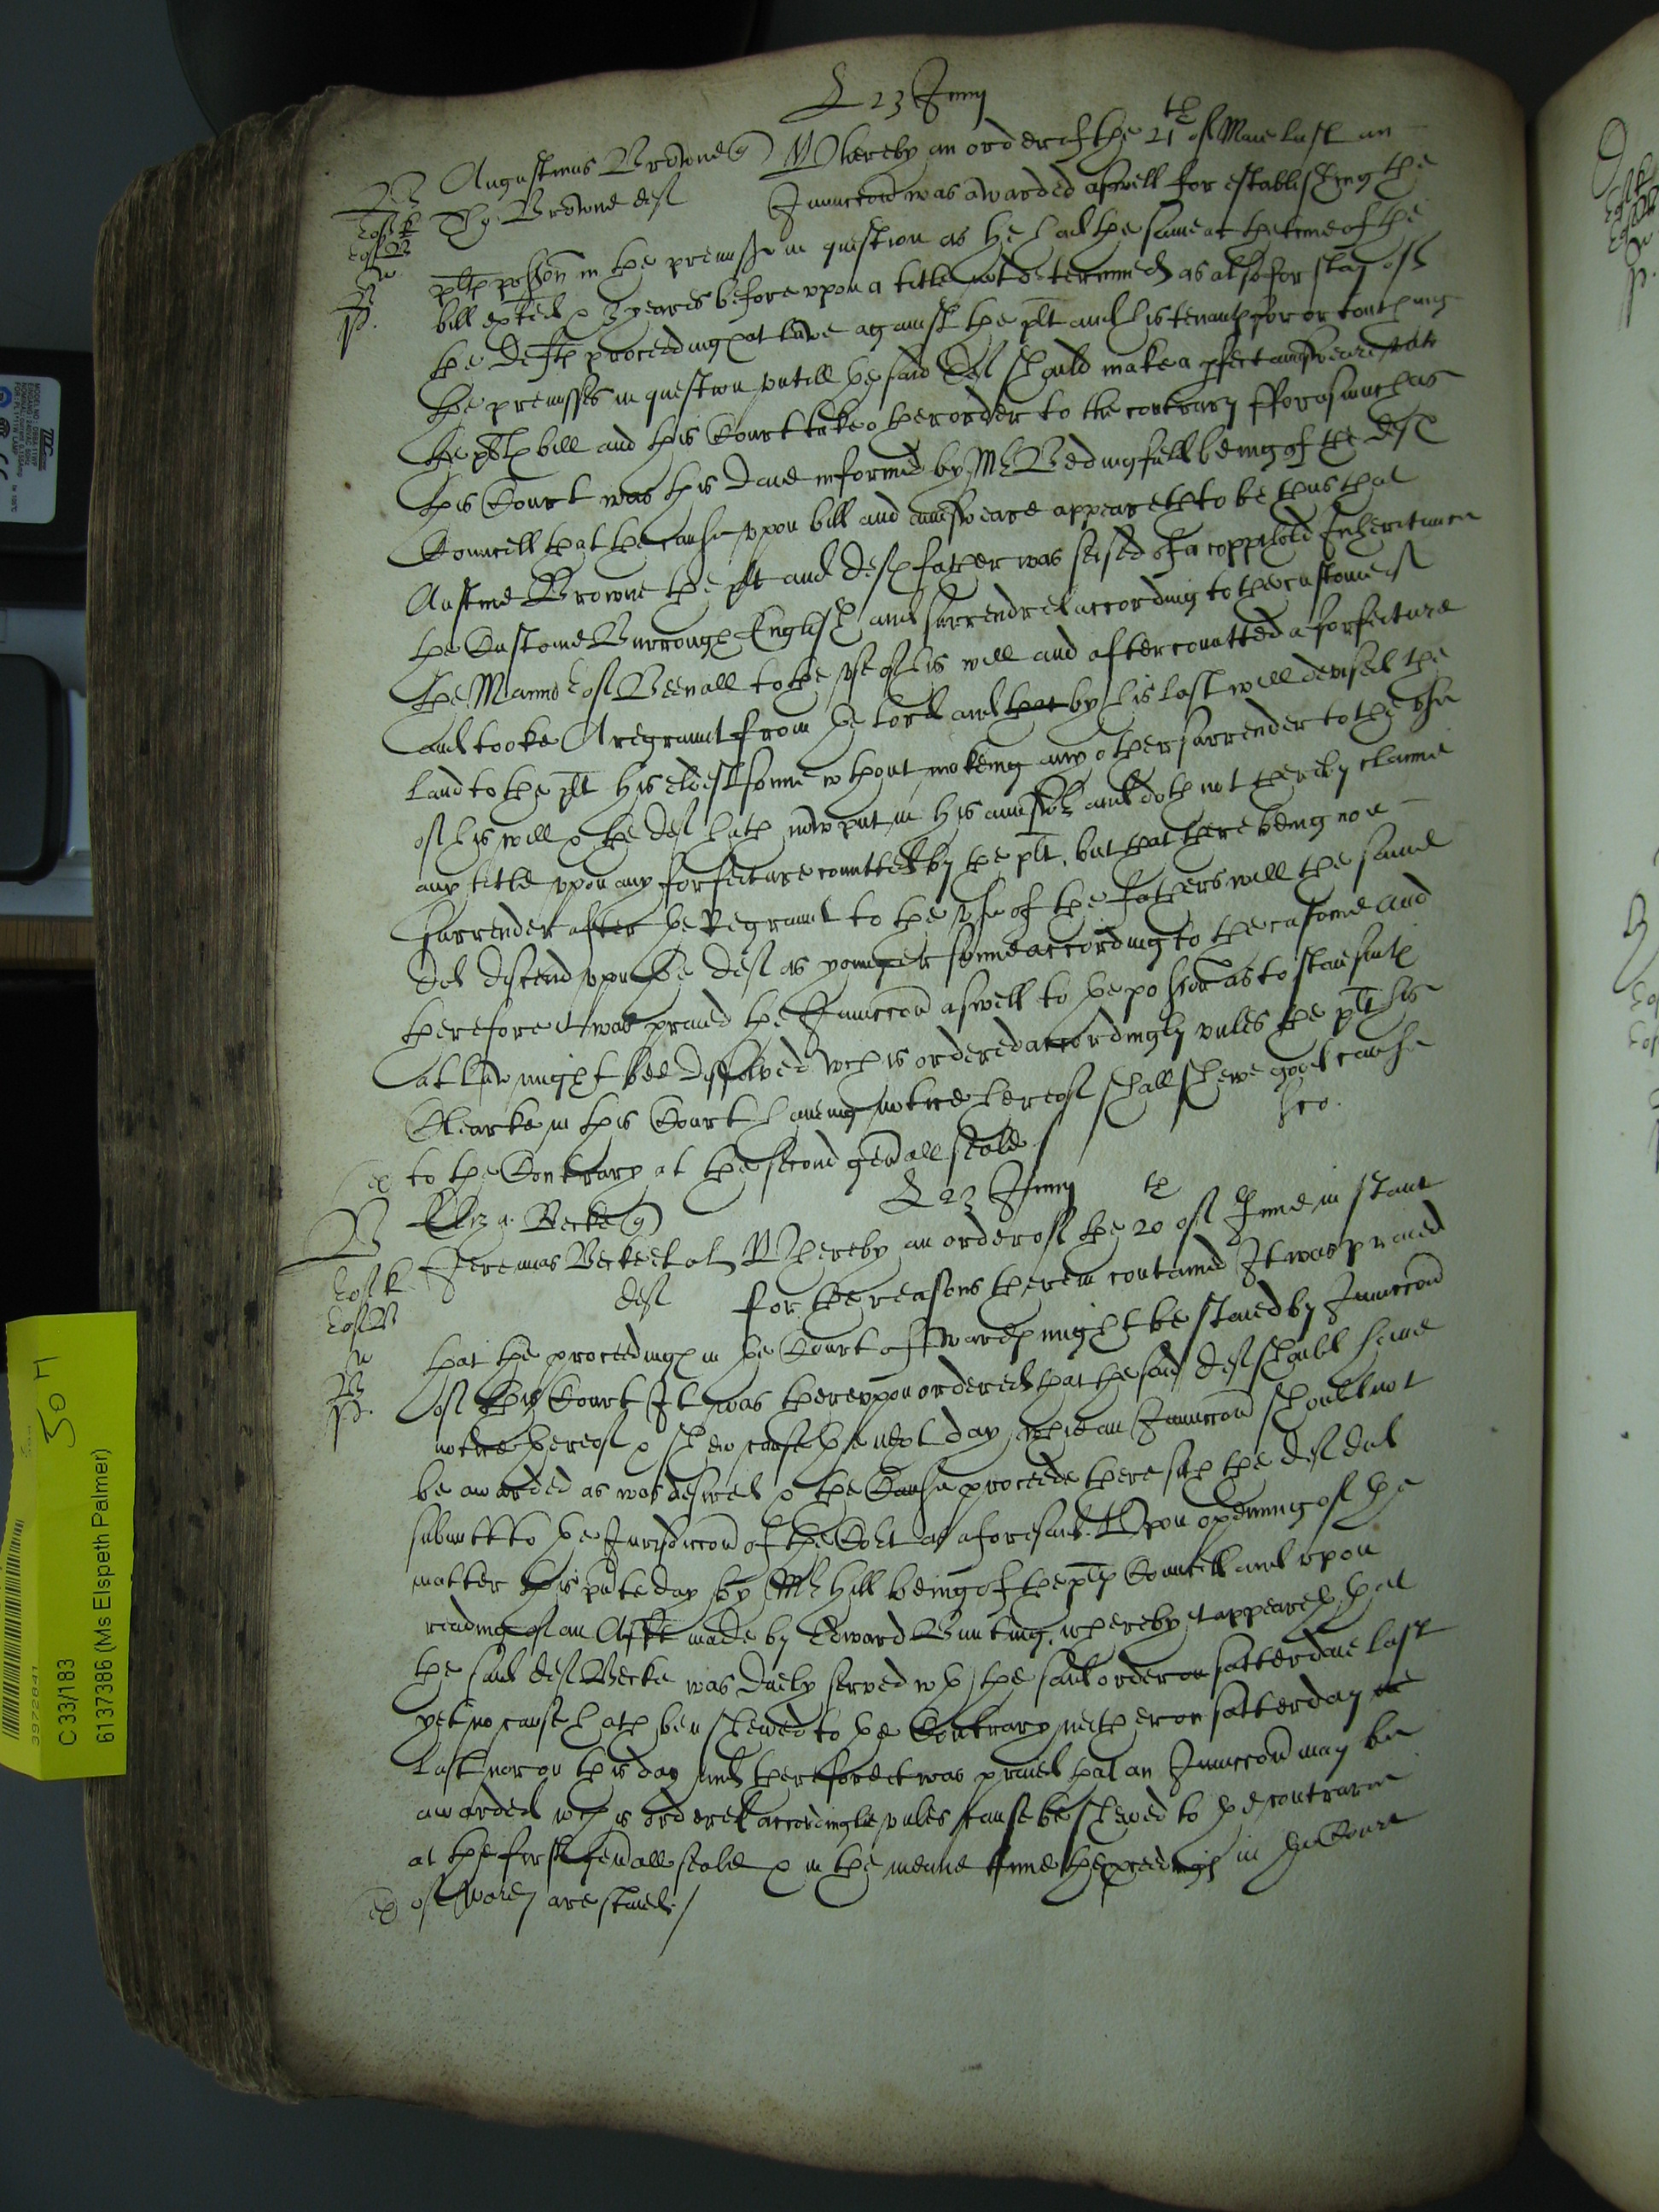 23 Junij
Augustinus Browne q Whereby an order of the 21th of Maie last an
Tho: Browne def Iniunccon was awarded aswell for establishing the
pltes possion in the premisses in question as he had the same at the time of the
bill exhted & 3 yeares before vpon a title not determined as also for stay of
the deftes proceedinges at lawe against the plt and his tenantes for or touching
the premisses in question vntill the said def should make a pfect answeare vnto
the pltes bill and this Court take other order to the contrary fforasmuch as
this Court was this daie informed by Mr Bedingfeild being of the defes
Councell that the cause vpon bill and answeare appeareth to be thus that
Austine Browne the plt and defes father was seised of a coppihold Inheritance
the Custome Burrough English and surrendred according to the custome of
the Mannor of Beenall to the vse of his will and after comitted a forfeiture
and tooke A regraunt from the lord and that by his last will devised the
land to the plt his eldest sonne without makeing any other surrender to the vse
of his will & the def hath now put in his answer and doth not thereby claime
any title vpon any forfeiture comitted by the plt, but that there being noe
surrender after the Regraunt to the vse of the fathers will the same
did discend vpon the def as younger sonne according to the custome and
therefore it was praied the Iniunccon aswell to the possion as to staie suites
at law might bee dissolved wch is ordered accordingly vnles the pltes
Clearke in this Court haueing notice hereof shall shewe good cause
to the Contrary at the second genall seale /
23 Junij
Eliz a Becke q
Jeremias Becke et al Whereby an order of the 20th of June instant
def for the reasons therein contained It was praied
that the proceedinges in the Court of Wardes might be staied by Iniunccon
of this Court It was therevpon ordered that the said def should haue
notice thereof & shew cause the next day why an Iniunccon should not
be awarded as was desired & the Cause proceede here sith the def did
submitt to the Jurisdiccon of the Cort as aforesaid. Upon opening of the
matter this pnte day by Mr Hill being of the pltes Councell and vpon
reading of an Affidt made by Edward Bunting, whereby it appeared that
the said def Becke was duely served wth the said order on satterdaie last
yet no cause hath ben shewed to the Contrary neither on satterday
last nor on this day And therefore it was praied that an Iniunccon may be
awarded wch is ordered accordinglie vnles cause be shewed to the contrarie
at the first genall seale & in the meane tyme the pceedinges in the Court
of Wardes are staied /
C 33/183
6137386 (Ms Elspeth Palmer)
3972841